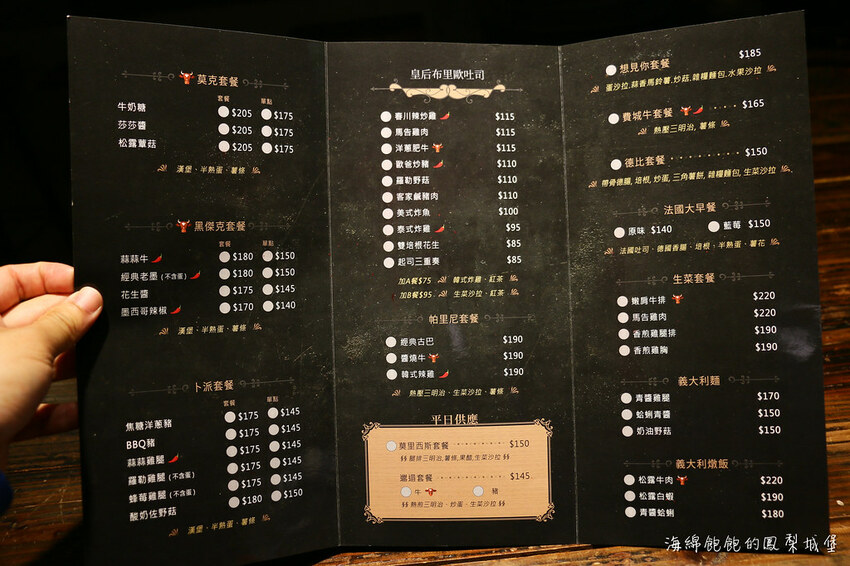 莫克套餐
套餐 單點
牛奶糖 $205 $175
莎莎醬 $205 $175
松露蕈菇 $205 $175
漢堡、半熟蛋、薯條
黑傑克套餐
套餐 單點
蒜蒜牛 $180 $150
經典老墨(不含蛋) $180 $150
花生醬 $175 $145
墨西哥辣椒 $170 $140
漢堡、半熟蛋、薯條
卜派套餐
套餐 單點
焦糖洋蔥豬 $175 $145
BBQ豬 $175 $145
蒜蒜雞腿 $175 $145
羅勒雞腿(不含蛋) $175 $145
蜂莓雞腿(不含蛋) $175 $145
酸奶佐野菇 $180 $150
漢堡、半熟蛋、薯條
皇后布里歐吐司
賽川辣炒雞 $115
馬告雞肉 $115
洋蔥肥牛 $115
歐爸炒豬 $110
羅勒野菇 $110
客家鹹豬肉 $110
美式炸魚 $100
泰式炸雞 $95
雙培根花生 $85
起司三重奏 $85
加A餐$75 韓式炸雞、紅茶
加B餐$95 生菜沙拉、紅茶
帕里尼套餐
經典古巴 $190
醬燒牛 $190
韓式辣雞 $190
熱壓三明治、生菜沙拉、薯條
平日供應
莫里西斯套餐 $150
腿排三明治,薯條,果醋,生菜沙拉
邂逅套餐 $145
牛 豬
熱煎三明治、炒蛋、生菜沙拉
想見你套餐 $185
蛋沙拉,蒜香馬鈴薯,炒菇,雜糧麵包,水果沙拉
費城牛套餐 $165
熱壓三明治,薯條
德比套餐 $150
帶骨德腸,培根,炒蛋,三角薯餅,雜糧麵包,生菜沙拉
法國大早餐
原味 $140 藍莓 $150
法國吐司、德國香腸、培根、半熟蛋、薯花
生菜套餐
嫩肩牛排 $220
馬告雞肉 $220
香煎雞腿排 $190
香煎雞胸 $190
義大利麵
青醬雞腿 $170
蛤蜊青醬 $150
奶油野菇 $150
義大利燉飯
松露牛肉 $220
松露白蝦 $190
青醬蛤蜊 $180
海綿飽飽的鳳梨城堡